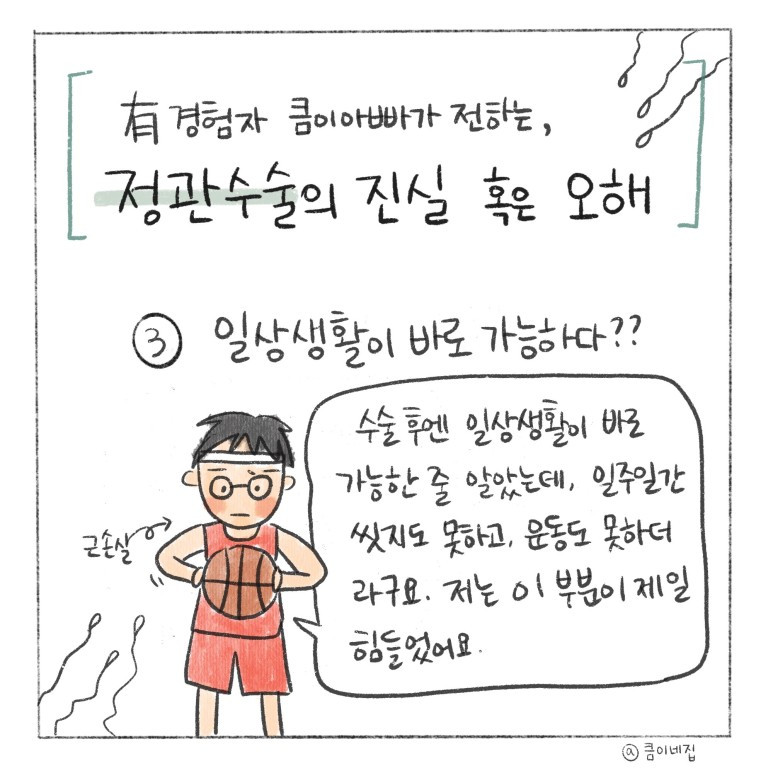 有 경험자 콤이아빠가 전하는,
정관수술의 진실 혹은 오해
③ 일상생활이 바로 가능하다??
수술 후엔 일상생활이 바로
가능한 줄 알았는데, 일주일간
씻지도 못하고, 운동도 못하더
라구요. 저는 이 부분이 제일
힘들었어요.
근손실
@콤이네집